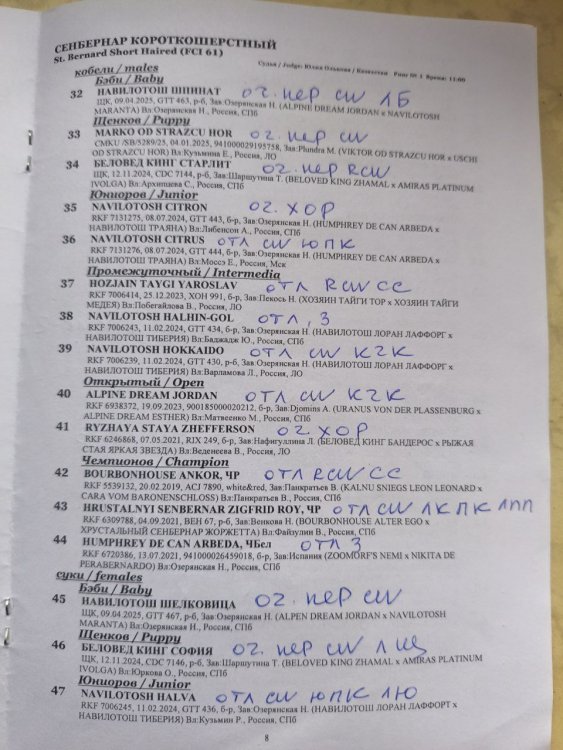 СЕНБЕРНАР КОРОТКОШЕРСТНЫЙ
St. Bernard Short Haired (FCI 61)
Судья / Judge: Юлия Ольхова / Казахстан Ринг № 1 Время: 11:00
кобели / males
Бэби / Baby
32 НАВИЛОТОШ ШПИНАТ оч. пер CW ЛБ
ЩК, 09.04.2025, GTT 463, р-б, Зав Озерянская Н. (ALPINE DREAM JORDAN x NAVILOTOSH
MARANTA) Вл:Озерянская Н., Россия, СПб
Щенков / Puppy
33 MARKO OD STRAZCU HOR оч. пер CW
CMKU /SB/5289/25, 04.01.2025, 941000029195758, Зав:Plundra M. (VIKTOR OD STRAZCU HOR x USCHI
OD STRAZCU HOR) Вл:Кузьмина Е., Россия, ЛО
34 БЕЛОВЕД КИНГ СТАРЛИТ оч. пер RCW
ЩК, 12.11.2024, CDC 7144, р-б, Зав:Шаршутина Т. (BELOVED KING ZHAMAL x AMIRAS PLATINUM
IVOLGA) Вл:Архипцева С., Россия, СПб
Юниоров / Junior
35 NAVILOTOSH CITRON оч. хор
RKF 7131275, 08.07.2024, GTT 443, б-р, Зав:Озерянская Н. (HUMPHREY DE CAN ARBEDA x
НАВИЛОТОШ ТРАЯНА) Вл:Либенсон А., Россия, СПб
36 NAVILOTOSH CITRUS отл CW ЮПК
RKF 7131276, 08.07.2024, GTT 444, б-р, Зав:Озерянская Н. (HUMPHREY DE CAN ARBEDA x
НАВИЛОТОШ ТРАЯНА) Вл:Моссэ Е., Россия, Мск
Промежуточный / Intermedia
37 HOZJAIN TAYGI YAROSLAV отл RCW CC
RKF 7006414, 25.12.2023, ХОН 991, б-р, Зав:Пекось Н. (ХОЗЯИН ТАЙГИ ТОР x ХОЗЯИН ТАЙГИ
МЕДЕЯ) Вл:Побегайлова В., Россия, ЛО
38 NAVILOTOSH HALHIN-GOL отл, 3
RKF 7006243, 11.02.2024, GTT 434, р-б, Зав:Озерянская Н. (НАВИЛОТОШ ЛОРАН ЛАФФОРГ x
НАВИЛОТОШ ТИБЕРИЯ) Вл:Баджадж Ю., Россия, СПб
39 NAVILOTOSH HOKKAIDO отл CW КЧК
RKF 7006239, 11.02.2024, GTT 430, р-б, Зав:Озерянская Н. (НАВИЛОТОШ ЛОРАН ЛАФФОРГ x
НАВИЛОТОШ ТИБЕРИЯ) Вл:Варламова Л., Россия, ЛО
Открытый / Open
40 ALPINE DREAM JORDAN отл CW КЧК
RKF 6938372, 19.09.2023, 900185000020212, б-р, Зав:Djomins A. (URANUS VON DER PLASSENBURG x
ALPINE DREAM ESTHER) Вл:Матвеенко М., Россия, СПб
41 RYZHAYA STAYA ZHEFFERSON оч. хор
RKF 6246868, 07.05.2021, RIX 249, б-р, Зав:Нафигуллина Л. (БЕЛОВЕД КИНГ БАНДЕРОС x РЫЖАЯ
СТАЯ ЯРКАЯ ЗВЕЗДА) Вл:Веденеева В., Россия, ЛО
Чемпионов / Champion
42 BOURBONHOUSE ANKOR, ЧР отл RCW CC
RKF 5539132, 20.02.2019, ACI 7890, white&red, Зав:Панкратьев В. (KALNU SNIEGS LEON LEONARD x
CARA VOM BARONENSCHLOSS) Вл:Панкратьев В., Россия, СПб
43 HRUSTALNYI SENBERNAR ZIGFRID ROY, ЧР отл CW ЛК ПК ЛПП
RKF 6309788, 04.09.2021, ВЕН 67, р-б, Зав:Венкова Н. (BOURBONHOUSE ALTER EGO x
ХРУСТАЛЬНЫЙ СЕНБЕРНАР ЖОРЖЕТТА) Вл:Файзулин В., Россия, СПб
44 HUMPHREY DE CAN ARBEDA, ЧБел отл 3
RKF 6720386, 13.07.2021, 941000026459018, б-р, Зав:Испания (ZOOMORF'S NEMI x NIKITA DE
PERABERNARDO) Вл:Озерянская Н., Россия, СПб
суки / females
Бэби / Baby
45 НАВИЛОТОШ ШЕЛКОВИЦА оч. пер CW
ЩК, 09.04.2025, GTT 467, р-б, Зав:Озерянская Н. (ALPEN DREAM JORDAN x NAVILOTOSH
MARANTA) Вл:Озерянская Н., Россия, СПб
Щенков / Puppy
46 БЕЛОВЕД КИНГ СОФИЯ оч. пер CW ЛЩ
ЩК, 12.11.2024, CDC 7146, р-б, Зав:Шаршутина Т. (BELOVED KING ZHAMAL x AMIRAS PLATINUM
IVOLGA) Вл:Юркова О., Россия, СПб
Юниоров / Junior
47 NAVILOTOSH HALVA отл CW ЮПК ЛЮ
RKF 7006245, 11.02.2024, GTT 436, б-р, Зав:Озерянская Н. (НАВИЛОТОШ ЛОРАН ЛАФФОРГ x
НАВИЛОТОШ ТИБЕРИЯ) Вл:Кузьмин Р., Россия, СПб
8